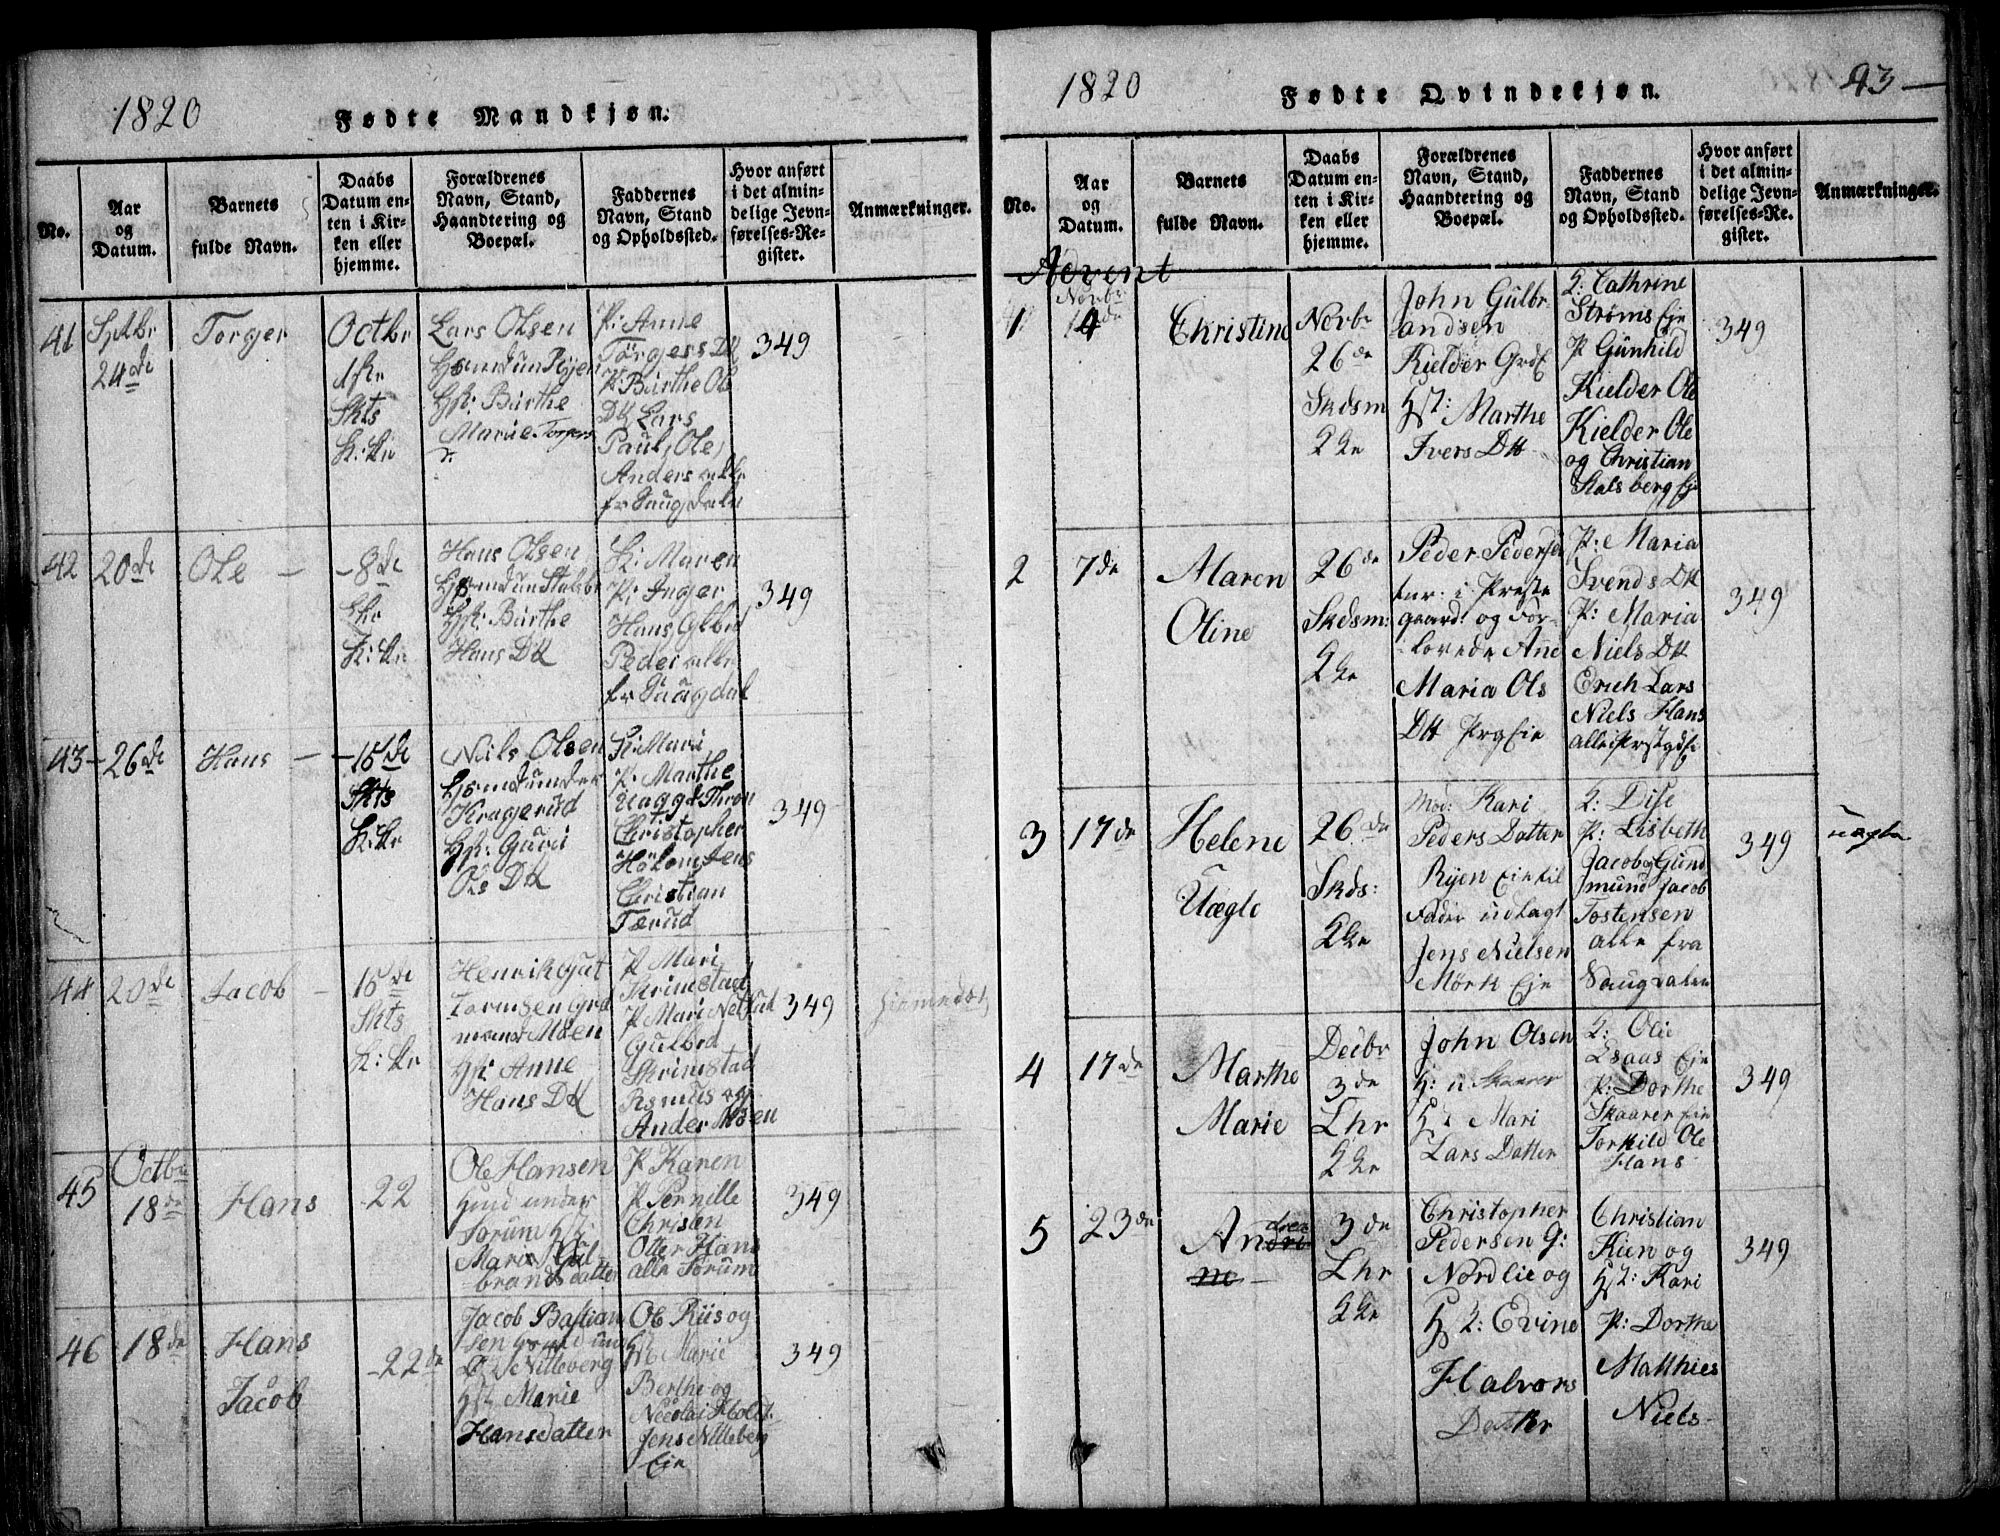 1820
Fødte Mandkjøn.
No.
Aar og Datum.
Barnets fulde Navn.
Daabs Datum enten i Kirken eller hjemme.
Forældrenes Navn, Stand, Haandtering og Boepæl.
Faddernes Navn, Stand og Opholdssted.
Hvor anført i det almindelige Jevnførelses-Register.
Anmærkninger.
41
Sptbr
24de
Torger
Octbr
1ste
Skts
K: Kr
Lars Olsen
Hst: Barthe
Marie Torgers
P: Anne
Törgers Dtt
P: Barthe Ols
Dtt Lars
Paul, Ole,
Anders alle
fr Saugdalen
349
42
20de
Ole
8de
K: Kr
Hans Olsen
Hst: Barthe
Hans Dtt
K: Maren
P: Inger
Hans, Glbrd
Peder alle
fr Saugdal
349
43
26de
Hans
15de
Skts
K: Kr
Niels Olsen
Hsmd under
Kragerud
Hst: Guri
Ols Dtt
K: Mari
P: Marthe
Christopher
Christian
349
44
20de
Jacob
15de
Skts
K: Kr
Henrik Gut
Hst: Anne
Hans Dtt
P Mari
Skrimstad
P Mari
Gulbrd
Skrimstad
Rsmus og
Ander Moen
349
45
Octbr
18de
Hans
22
Ole Hansen
Hsmd under
Sorum Hst:
Marie Gul-
brands datter
P Karen
P Pernille
Christen
Otter Hans
alle Sorum
349
46
18de
Hans
Jacob
22de
Jacob Bastian
sen Hsmd un
Nitteberg
Hst Marie
Hansdatter
Ole Riis og
Hst Marie
Berthe og
Nicolai Holst
Jens Nitteberg
Eje
349
1820
Fødte Qvindekjøn.
93
No.
Aar og Datum.
Barnets fulde Navn.
Daabs Datum enten i Kirken eller hjemme.
Forældrenes Navn, Stand, Haandtering og Boepæl.
Faddernes Navn, Stand og Opholdssted.
Hvor anført i det almindelige Jevnførelses-Register.
Anmærkninger.
Advent
1
Novbr
4de
Christine
Novbr
26de
Skdsm
Kke
John Gulbr
andsen
Kielder Grdf
Hst: Marthe
Ivers Dtt
K: Cathrine
Strøms Eje
P Gunhild
Kielder Ole
Kielder Ole
og Christian
Stalsberg Eje
349
2
7de
Maren
Oline
26de
Skdsm:
Kke
Peder Peders
tnr: i Preste
gaard og For-
lovede Ane
Maria Ols
Dtt PrgEje
P: Maria
Svends Dtt
P: Maria
Niels Dtt
Erich Lars
Niels Hans
349
3
17de
Helene
Uægte
26de
Skds:
Kke
Mod: Kari
Peders Datter
Ryen Eje til
Fader udlagt
Jens Nielsen
Mørk Eje
K: Dise
P: Lisbeth
Jacob Gund
mund Jacob
Tostensen
alle fra
Saugdalen
349
uægte
4
17de
Marthe
Marie
Decbr
3de
Lhr
Kke
John Olsen
H: u Skaarer
H: Mari
Lars Datter
K: Olie
Lsaas Eje
P: Dorthe
Skaarer Eje
Torkild Ole
Hans
349
5
23de
Andrine
3de
Lhr
Kke
Christopher
Pedersen G:
Nordlie og
Hst: Evine
Halvors
Datter
Christian
Kien og
Hst: Kari
P: Dorthe
Matthies
Niels
349